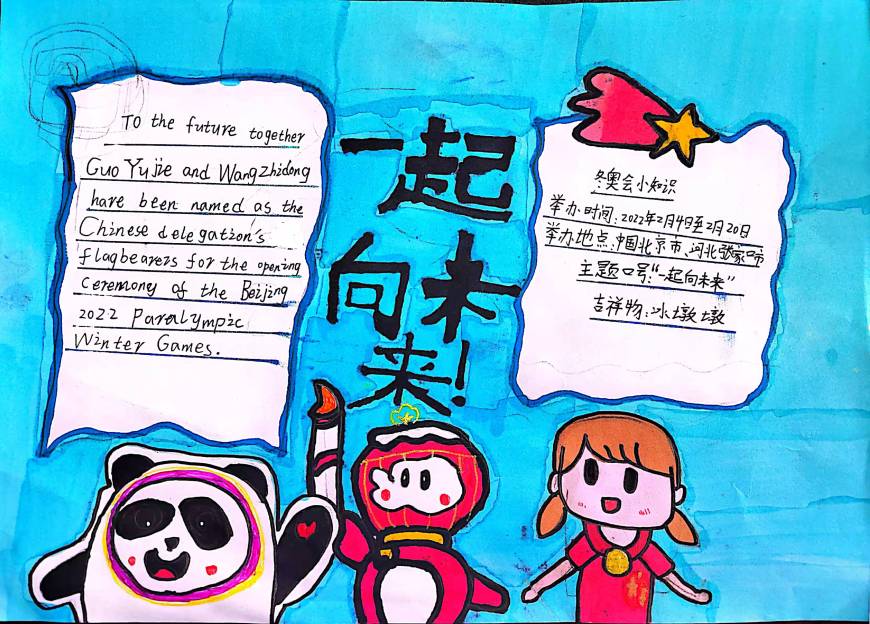 To the future together
Guo Yujie and Wangzhidong
have been named as the
Chinese delegation's
flagbearers for the opening
ceremony of the Beijing
2022 Paralympic
Winter Games.
一起
向未
来!
冬奥会小知识
举办时间:2022年2月4日至2月20日
举办地点:中国北京市、河北张家口市
主题口号:“一起向未来”
吉祥物:冰墩墩